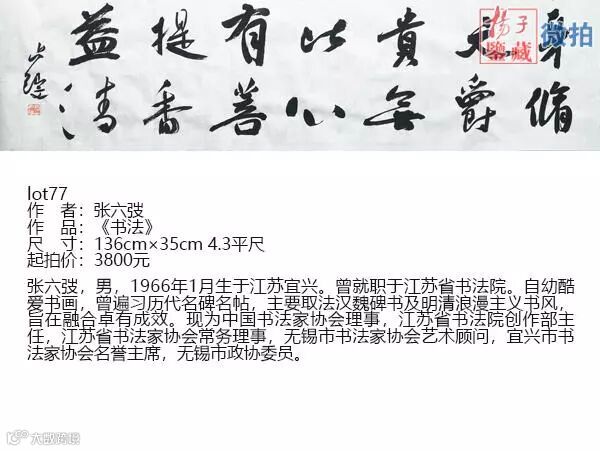 身脩
天爵
貴無
比心
有菩
提香
益清
六弢
揚子
鑒藏
微拍
lot77
作 者：张六弢
作 品：《书法》
尺 寸：136cm×35cm 4.3平尺
起拍价：3800元
张六弢，男，1966年1月生于江苏宜兴。曾就职于江苏省书法院。自幼酷
爱书画，曾遍习历代名碑名帖，主要取法汉魏碑书及明清浪漫主义书风，
旨在融合卓有成效。现为中国书法家协会理事，江苏省书法院创作部主
任，江苏省书法家协会常务理事，无锡市书法家协会艺术顾问，宜兴市书
法家协会名誉主席，无锡市政协委员。
大数跨境